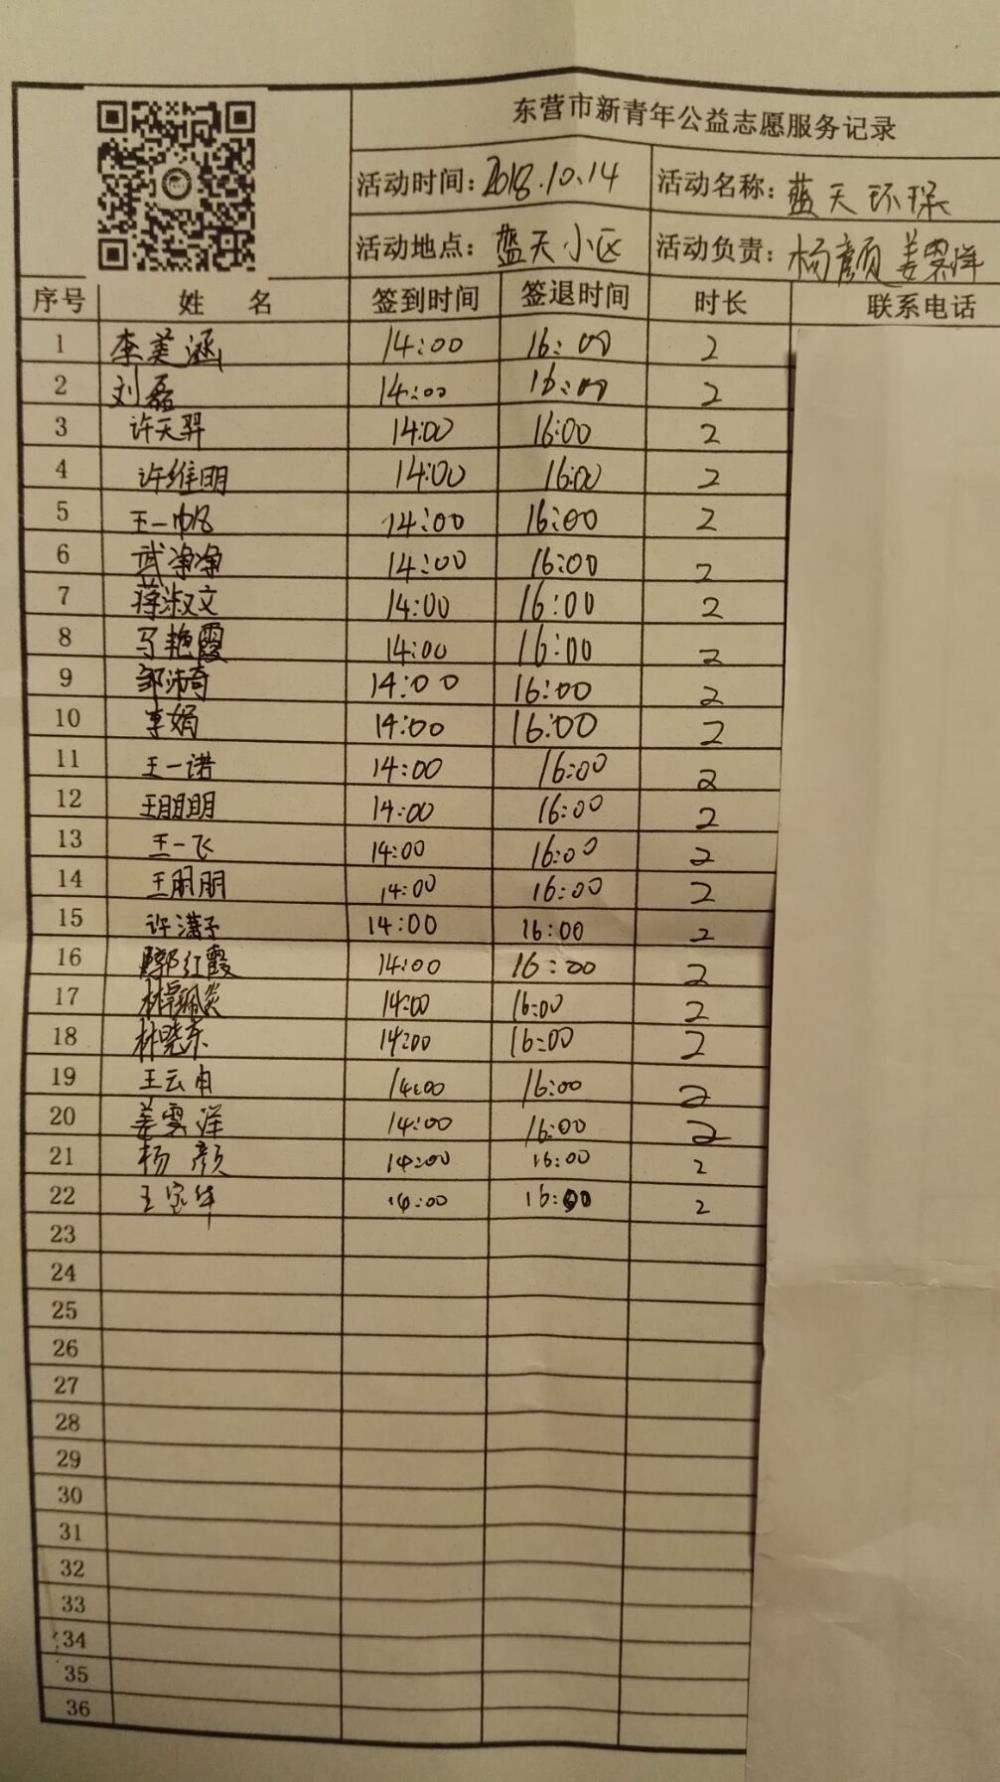 东营市新青年公益志愿服务记录
活动时间：2018.10.14 活动名称：蓝天环保
活动地点：蓝天小区 活动负责：杨颜 姜雲洋
序号 姓 名 签到时间 签退时间 时长 联系电话
1 李美涵 14:00 16:00 2
2 刘磊 14:00 16:00 2
3 许天羿 14:00 16:00 2
4 许维明 14:00 16:00 2
5 王一帆 14:00 16:00 2
6 武净净 14:00 16:00 2
7 蒋淑文 14:00 16:00 2
8 马艳霞 14:00 16:00 2
9 邹沛奇 14:00 16:00 2
10 李娟 14:00 16:00 2
11 王一诺 14:00 16:00 2
12 王明明 14:00 16:00 2
13 王一飞 14:00 16:00 2
14 王朋朋 14:00 16:00 2
15 许潇予 14:00 16:00 2
16 郭红霞 14:00 16:00 2
17 14:00 16:00 2
18 林晓东 14:00 16:00 2
19 14:00 16:00 2
20 姜雲洋 14:00 16:00 2
21 杨颜 14:00 16:00 2
22 王宝华 14:00 16:00 2
23
24
25
26
27
28
29
30
31
32
33
34
35
36